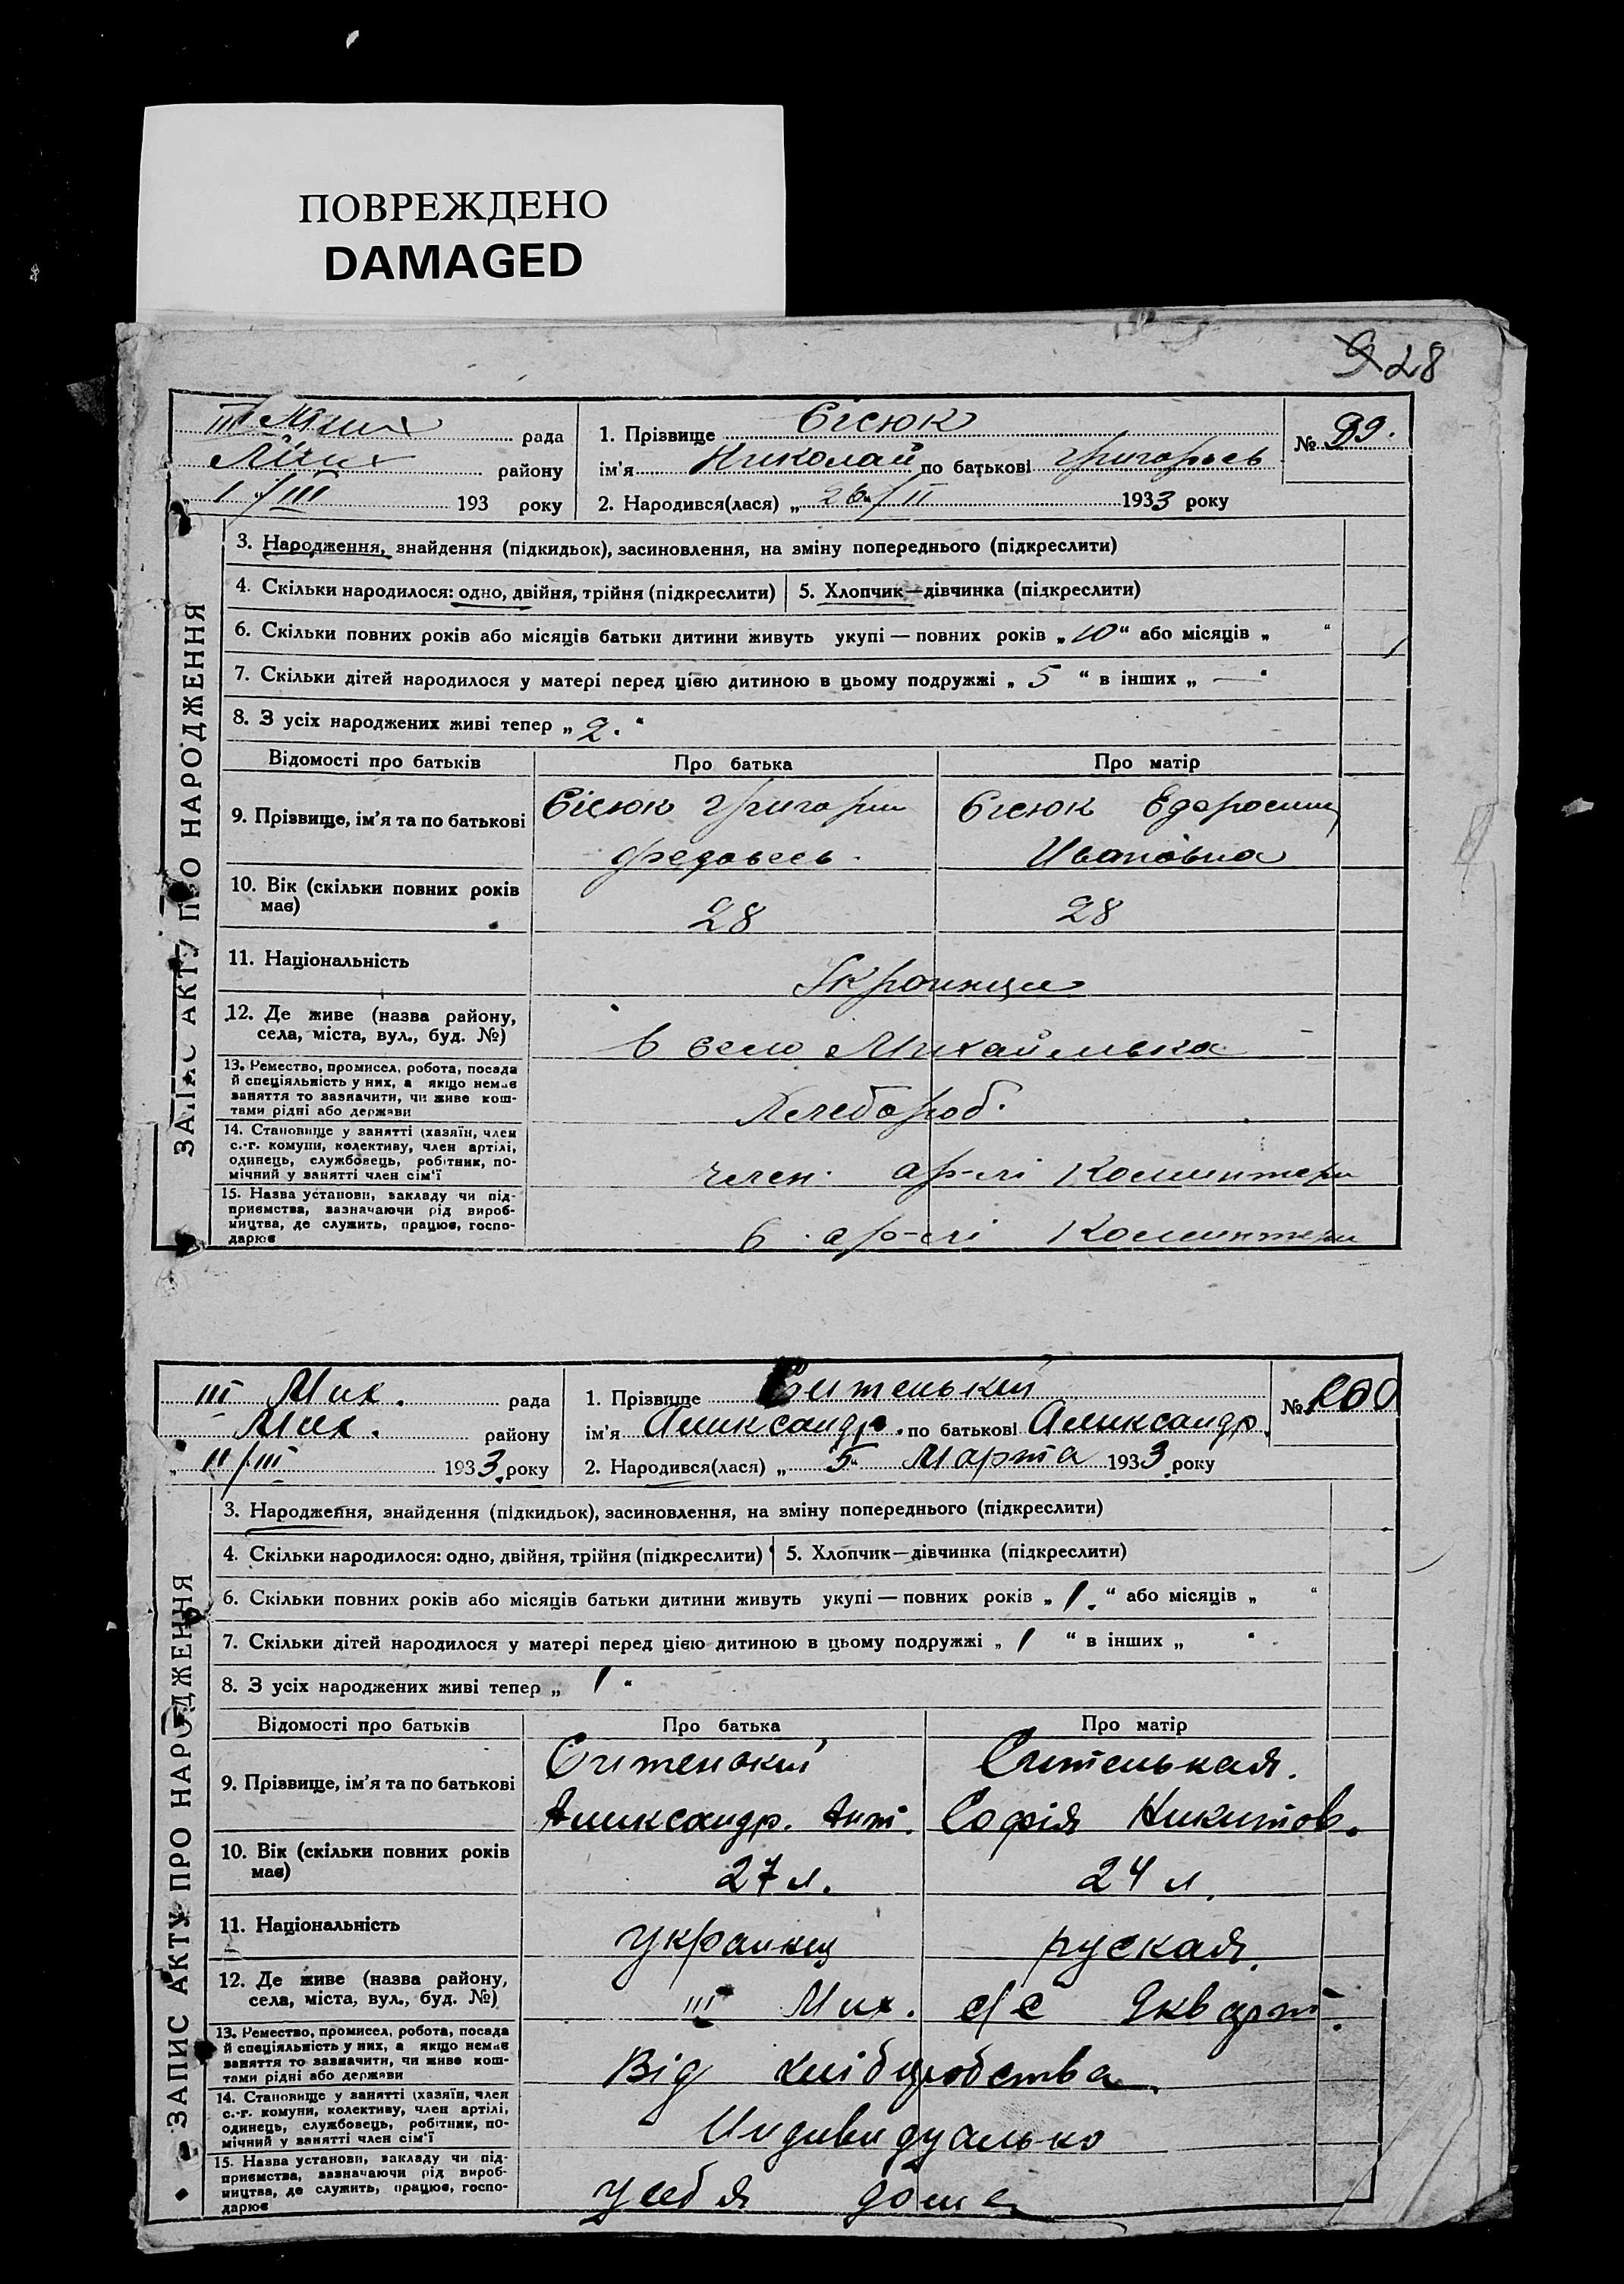 ПОВРЕЖДЕНО
DAMAGED
28
III Мих рада
Мих району
1/III 193 року
1. Прізвище Єісюк
№ 99.
ім'я Николай по батькові Григорьев
2. Народився(лася) „ 26 / II 1933 року
ЗАПИС АКТУ ПРО НАРОДЖЕННЯ
3. Народження, знайдення (підкидьок), засиновлення, на зміну попереднього (підкреслити)
4. Скільки народилося: одно, двійня, трійня (підкреслити) 5. Хлопчик—дівчинка (підкреслити)
6. Скільки повних років або місяців батьки дитини живуть укупі — повних років „ 10 “ або місяців „ “
7. Скільки дітей народилося у матері перед цією дитиною в цьому подружжі „ 5 “ в інших „ — “
8. З усіх народжених живі тепер „ 2 “
Відомості про батьків Про батька Про матір
9. Прізвище, ім'я та по батькові
Єісюк Григорий Єісюк
Ивановна
10. Вік (скільки повних років має) 28 28
11. Національність Украинци
12. Де живе (назва району, села, міста, вул., буд. №) в село Михайловка
13. Ремество, промисел, робота, посада
й спеціяльність у них, а якщо немає
заняття то зазначити, чи живе кош-
тами рідні або держави
Хлебороб.
14. Становище у занятті (хазяїн, член
с.-г. комуни, колективу, член артілі,
одинець, службовець, робітник, по-
мічний у занятті член сім'ї
член ар-лі Коминтерн
15. Назва установи, закладу чи під-
приємства, зазначаючи рід вироб-
ництва, де служить, працює, госпо-
дарює
в ар-лі Коминтерн
III Мих. рада
Мих. району
„ 11/III 1933 року
1. Прізвище Ситенький
№ 100
ім'я Аликсандр. по батькові Аликсандр.
2. Народився(лася) „ 5 “ Марта 1933 року
ЗАПИС АКТУ ПРО НАРОДЖЕННЯ
3. Народження, знайдення (підкидьок), засиновлення, на зміну попереднього (підкреслити)
4. Скільки народилося: одно, двійня, трійня (підкреслити) 5. Хлопчик—дівчинка (підкреслити)
6. Скільки повних років або місяців батьки дитини живуть укупі — повних років „ 1. “ або місяців „ “
7. Скільки дітей народилося у матері перед цією дитиною в цьому подружжі „ 1 “ в інших „ “
8. З усіх народжених живі тепер „ 1 “
Відомості про батьків Про батька Про матір
9. Прізвище, ім'я та по батькові
Ситенький Ситенькая.
Аликсандр. Ант. Софія Никитов.
10. Вік (скільки повних років має) 27 л. 24 л.
11. Національність украинец руская.
12. Де живе (назва району, села, міста, вул., буд. №) III Мих. с/с
13. Ремество, промисел, робота, посада
й спеціяльність у них, а якщо немає
заняття то зазначити, чи живе кош-
тами рідні або держави
Від хлібиробства.
14. Становище у занятті (хазяїн, член
с.-г. комуни, колективу, член артілі,
одинець, службовець, робітник, по-
мічний у занятті член сім'ї
Индивидуально
15. Назва установи, закладу чи під-
приємства, зазначаючи рід вироб-
ництва, де служить, працює, госпо-
дарює
у себя дома